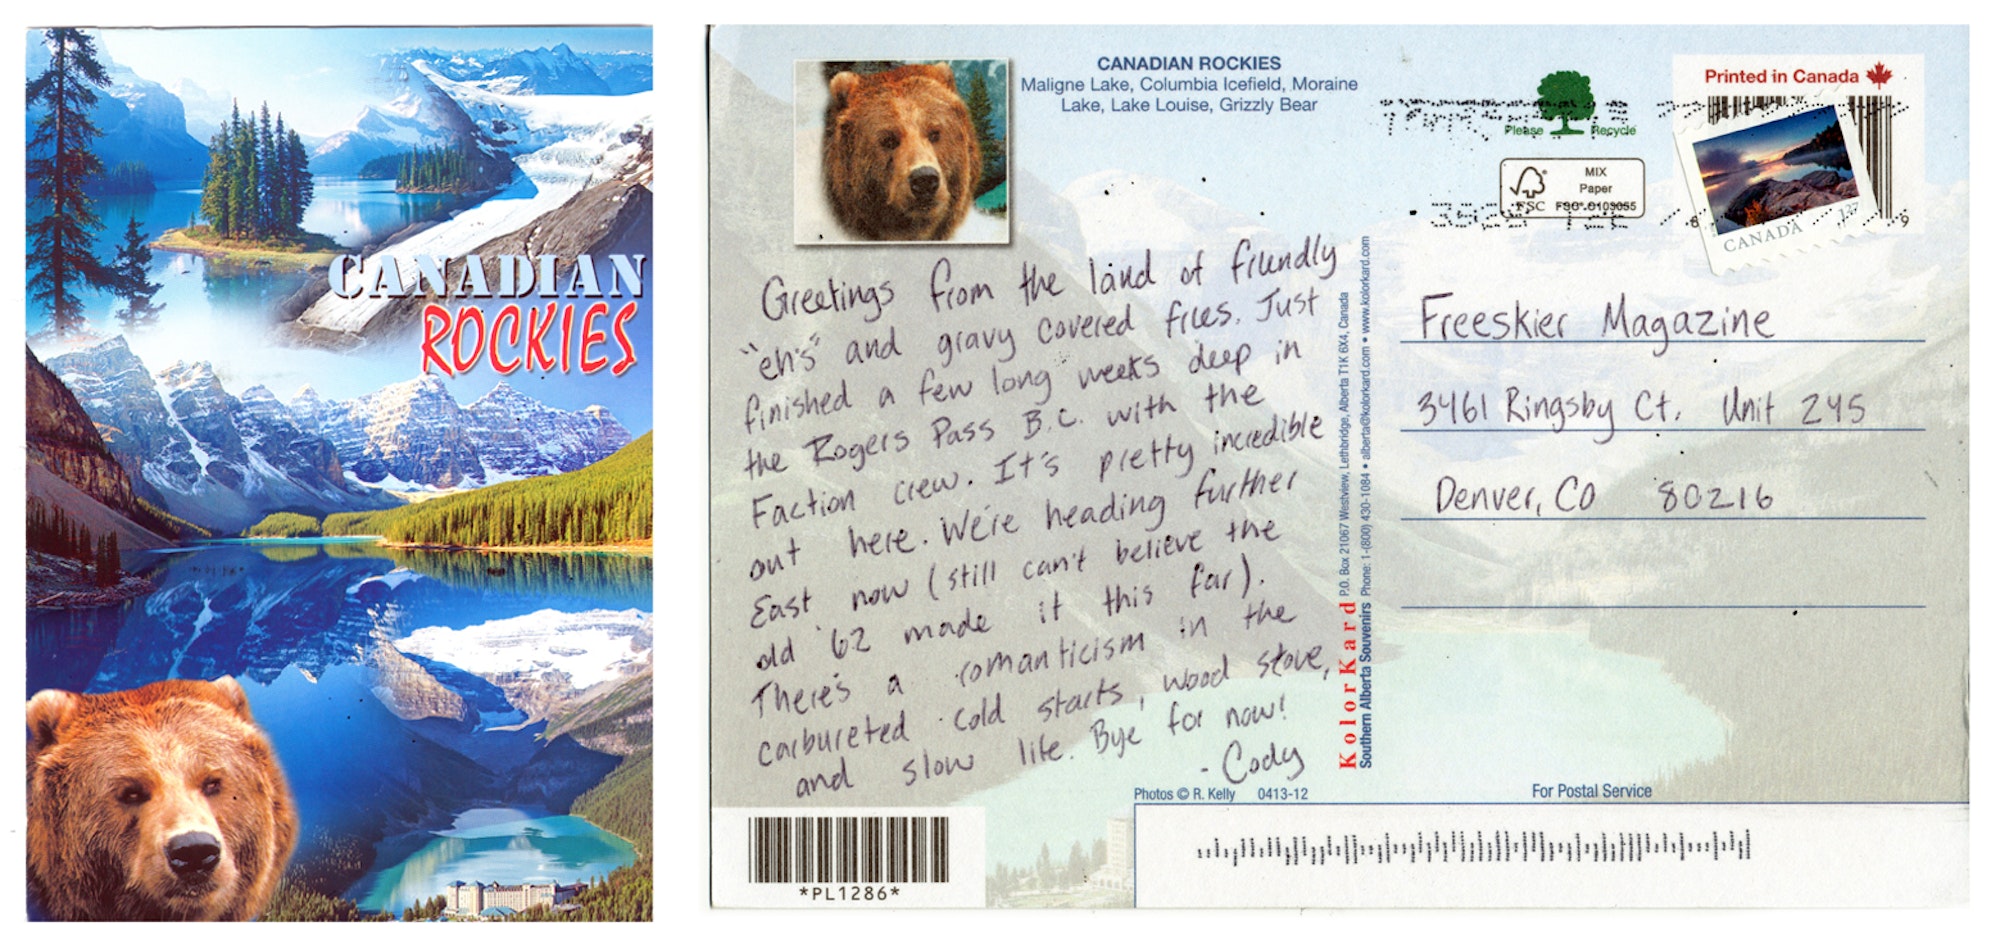 CANADIAN
ROCKIES
CANADIAN ROCKIES
Maligne Lake, Columbia Icefield, Moraine
Lake, Lake Louise, Grizzly Bear
Please Recycle
MIX
Paper
FSC
FSC® C103055
Printed in Canada
CANADA
Greetings from the land of friendly
"eh's" and gravy covered fries. Just
finished a few long weeks deep in
the Rogers Pass B.C. with the
Faction crew. It's pretty incredible
out here. We're heading further
East now (still can't believe the
old '62 made it this far).
There's a romanticism in the
carbureted cold starts, wood stove,
and slow life. Bye for now!
- Cody
KolorKard
P.O. Box 21067 Westview, Lethbridge, Alberta T1K 6X4, Canada
Southern Alberta Souvenirs Phone: 1-(800) 430-1084 • alberta@kolorkard.com • www.kolorkard.com
Freeskier Magazine
3461 Ringsby Ct. Unit 245
Denver, CO 80216
Photos © R. Kelly 0413-12
For Postal Service
*PL1286*